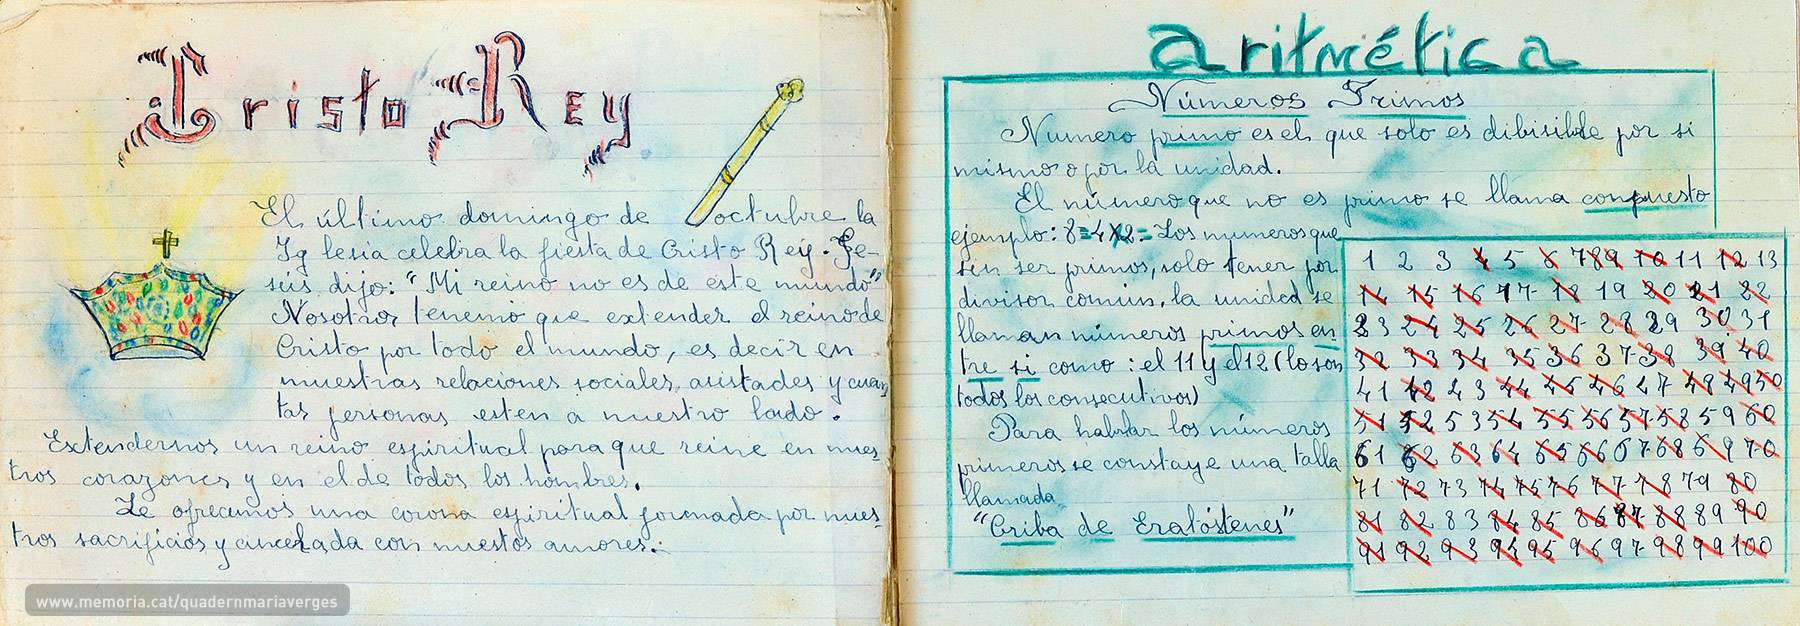 Cristo Rey
El último domingo de octubre la
Iglesia celebra la fiesta de Cristo Rey. Je-
sús dijo: "Mi reino no es de este mundo"
Nosotros tenemo que extender el reino de
Cristo por todo el mundo, es decir en
nuestras relaciones sociales, asistades y cuan
tas personas esten a nuestro lado.
Extendernos un reino espiritual para que reine en nues
tros corazones y en el de todos los hombres.
Le ofrecemos una corona espiritual formada por nues-
tros sacrificios y cincelada con nuestos amores.
www.memoria.cat/quadernmariaverges
aritmética
Números Primos
Numero primo es el que solo es dibisible por si
mismo o por la unidad.
El número que no es primo se llama conpuesto
ejemplo: 8=4x2= Los numeros que
sen ser primos, solo tener por
divisor común, la unidad se
llaman números primos en
tre si como: el 11 y el 12 (lo son
todos los consecutivos)
Para hablar los números
primeros se constaye una talla
llamada
"Criba de Eratóstenes"
1 2 3 4 5 6 7 8 9 10 11 12 13
14 15 16 17 18 19 20 21 22
23 24 25 26 27 28 29 30 31
32 33 34 35 36 37 38 39 40
41 42 43 44 45 46 47 48 49 50
51 52 53 54 55 56 57 58 59 60
61 62 63 64 65 66 67 68 69 70
71 72 73 74 75 76 77 78 79 80
81 82 83 84 85 86 87 88 89 90
91 92 93 94 95 96 97 98 99 100